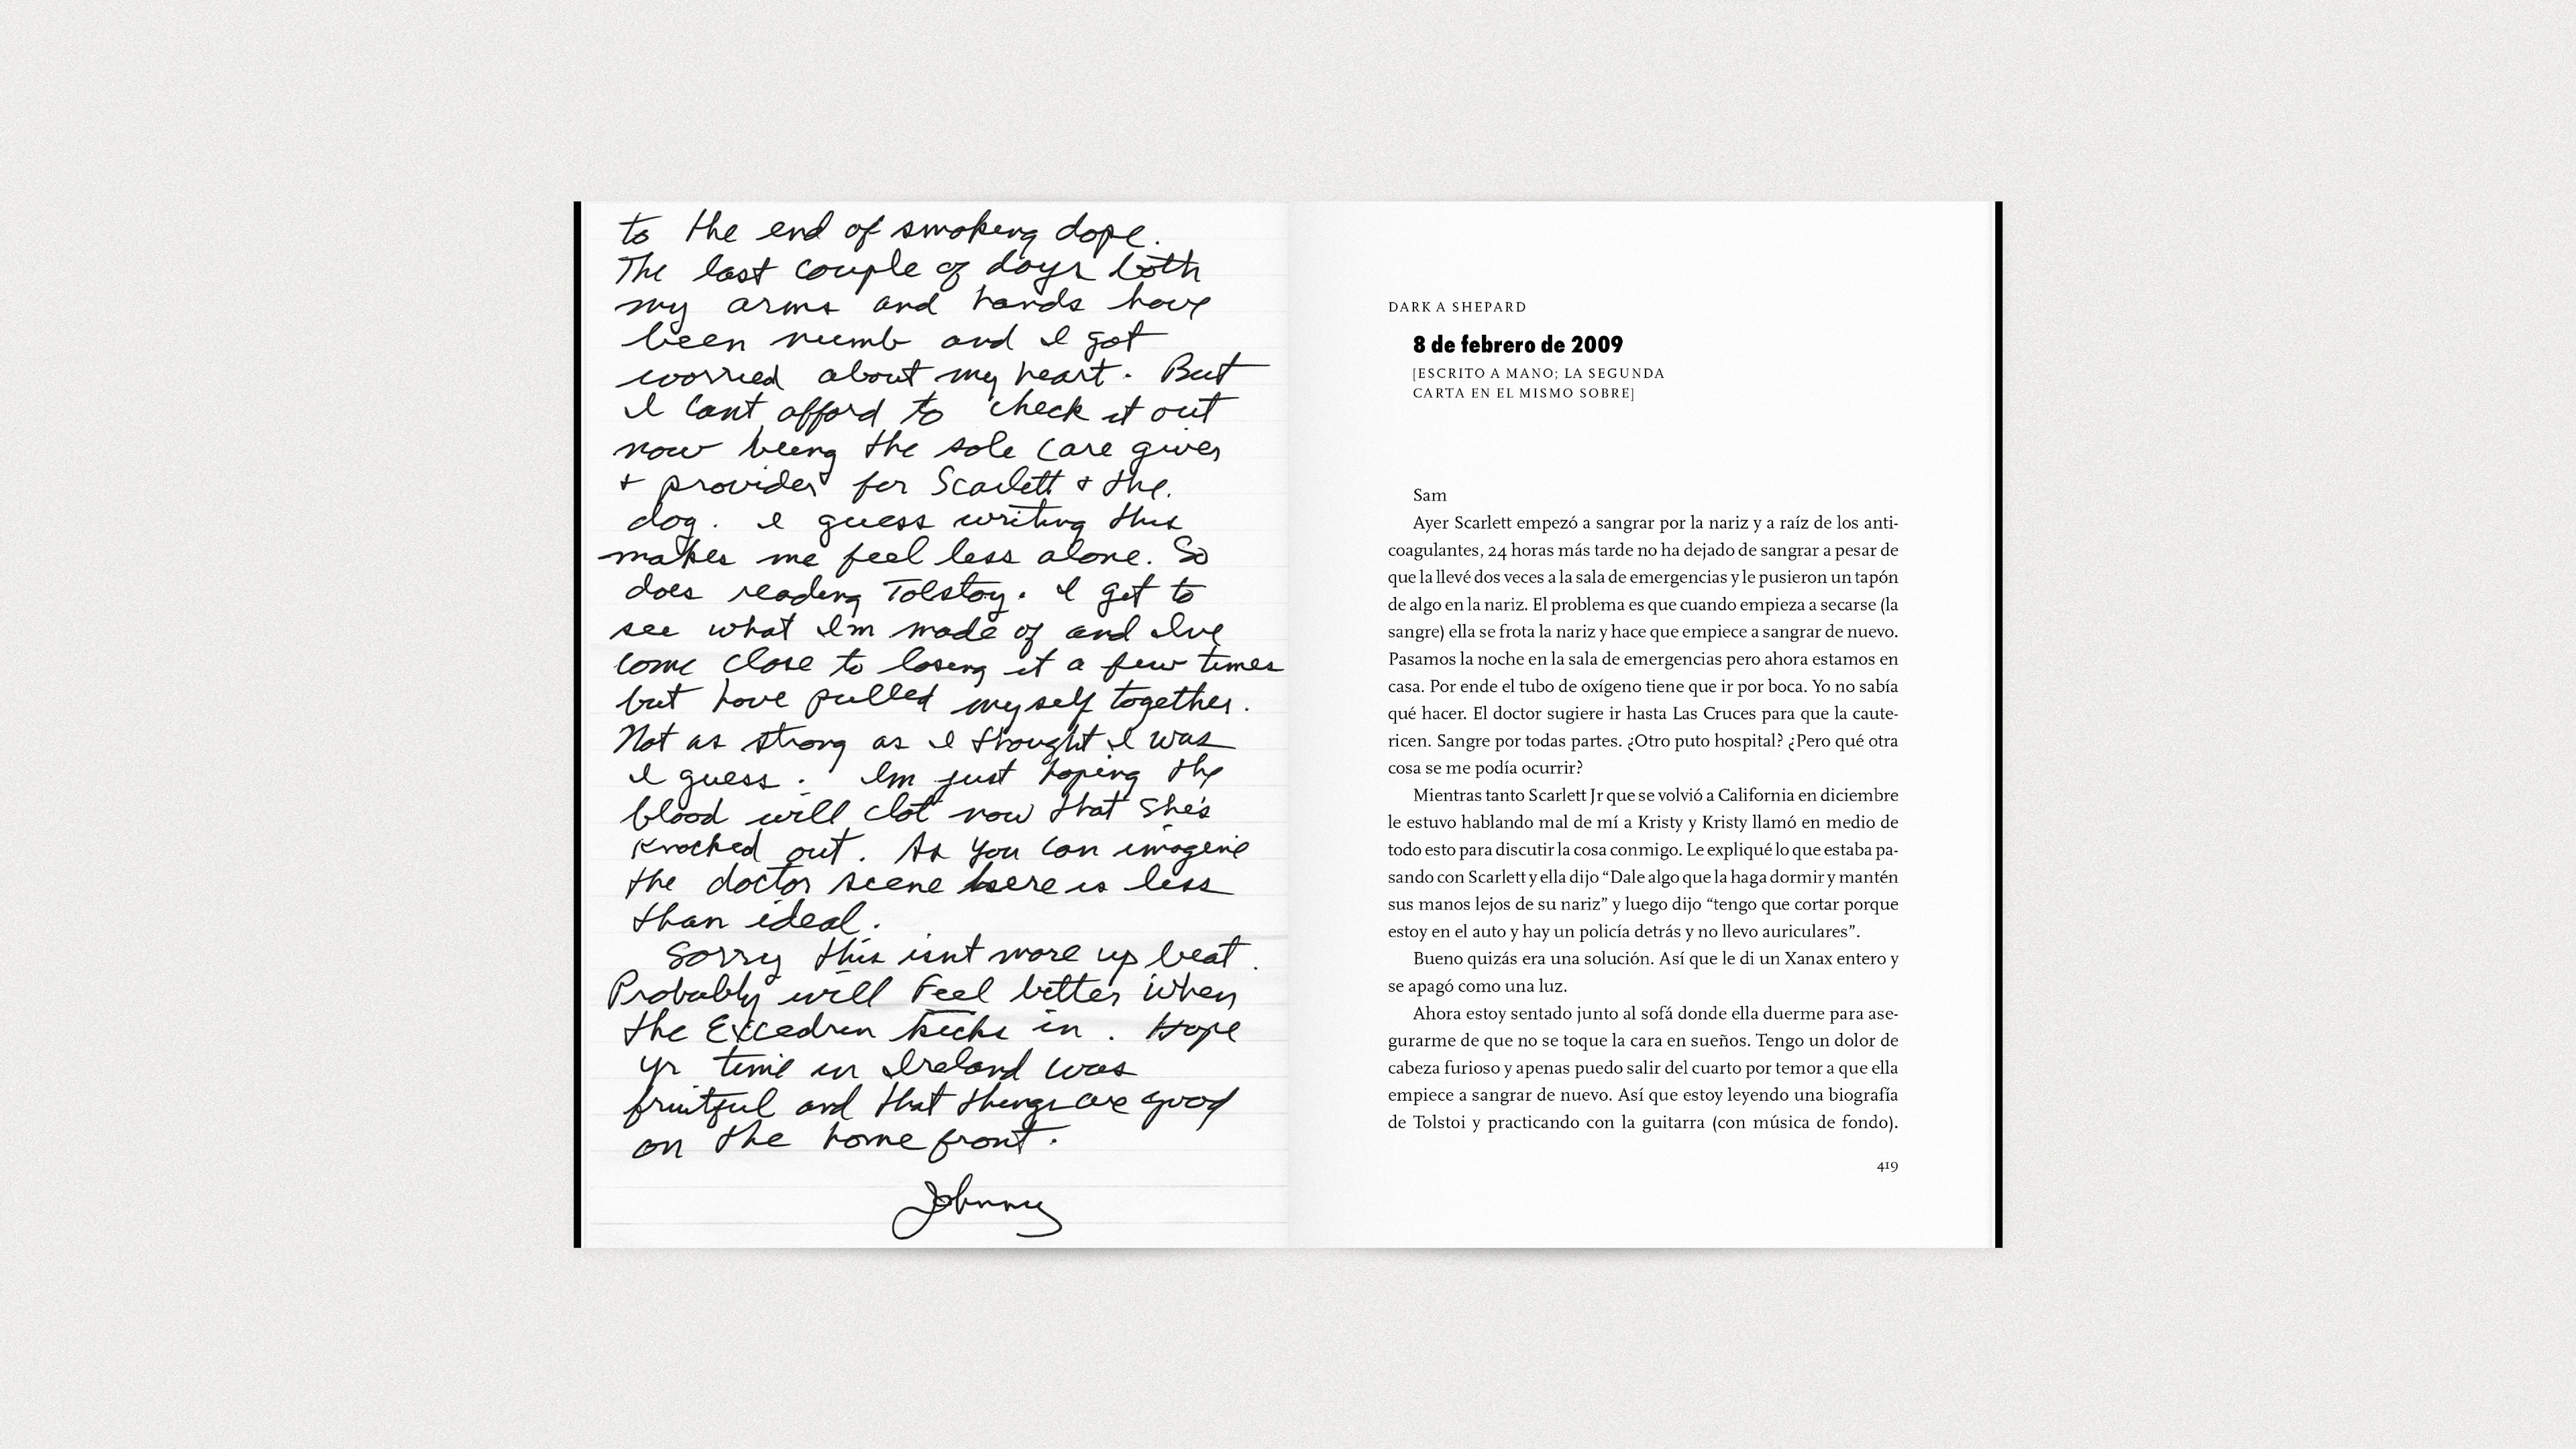 to the end of smoking dope.
The last couple of days both
my arms and hands have
been numb and I got
worried about my heart. But
I cant afford to check it out
now being the sole care giver
+ provider for Scarlett + the
dog. I guess writing this
makes me feel less alone. So
does reading Tolstoy. I get to
see what Im made of and Ive
come close to losing it a few times
but have pulled myself together.
Not as strong as I thought I was
I guess. Im just hoping the
blood will clot now that she's
knocked out. As you can imagine
the doctor scene here is less
than ideal.
Sorry this isnt more up beat.
Probably will feel better when
the Excedrin kicks in. Hope
yr time in Ireland was
fruitful and that things are good
on the home front.
Johnny
DARK A SHEPARD
8 de febrero de 2009
[ESCRITO A MANO; LA SEGUNDA
CARTA EN EL MISMO SOBRE]
Sam
Ayer Scarlett empezó a sangrar por la nariz y a raíz de los anti-
coagulantes, 24 horas más tarde no ha dejado de sangrar a pesar de
que la llevé dos veces a la sala de emergencias y le pusieron un tapón
de algo en la nariz. El problema es que cuando empieza a secarse (la
sangre) ella se frota la nariz y hace que empiece a sangrar de nuevo.
Pasamos la noche en la sala de emergencias pero ahora estamos en
casa. Por ende el tubo de oxígeno tiene que ir por boca. Yo no sabía
qué hacer. El doctor sugiere ir hasta Las Cruces para que la caute-
ricen. Sangre por todas partes. ¿Otro puto hospital? ¿Pero qué otra
cosa se me podía ocurrir?
Mientras tanto Scarlett Jr que se volvió a California en diciembre
le estuvo hablando mal de mí a Kristy y Kristy llamó en medio de
todo esto para discutir la cosa conmigo. Le expliqué lo que estaba pa-
sando con Scarlett y ella dijo “Dale algo que la haga dormir y mantén
sus manos lejos de su nariz” y luego dijo “tengo que cortar porque
estoy en el auto y hay un policía detrás y no llevo auriculares”.
Bueno quizás era una solución. Así que le di un Xanax entero y
se apagó como una luz.
Ahora estoy sentado junto al sofá donde ella duerme para ase-
gurarme de que no se toque la cara en sueños. Tengo un dolor de
cabeza furioso y apenas puedo salir del cuarto por temor a que ella
empiece a sangrar de nuevo. Así que estoy leyendo una biografía
de Tolstoi y practicando con la guitarra (con música de fondo).
419